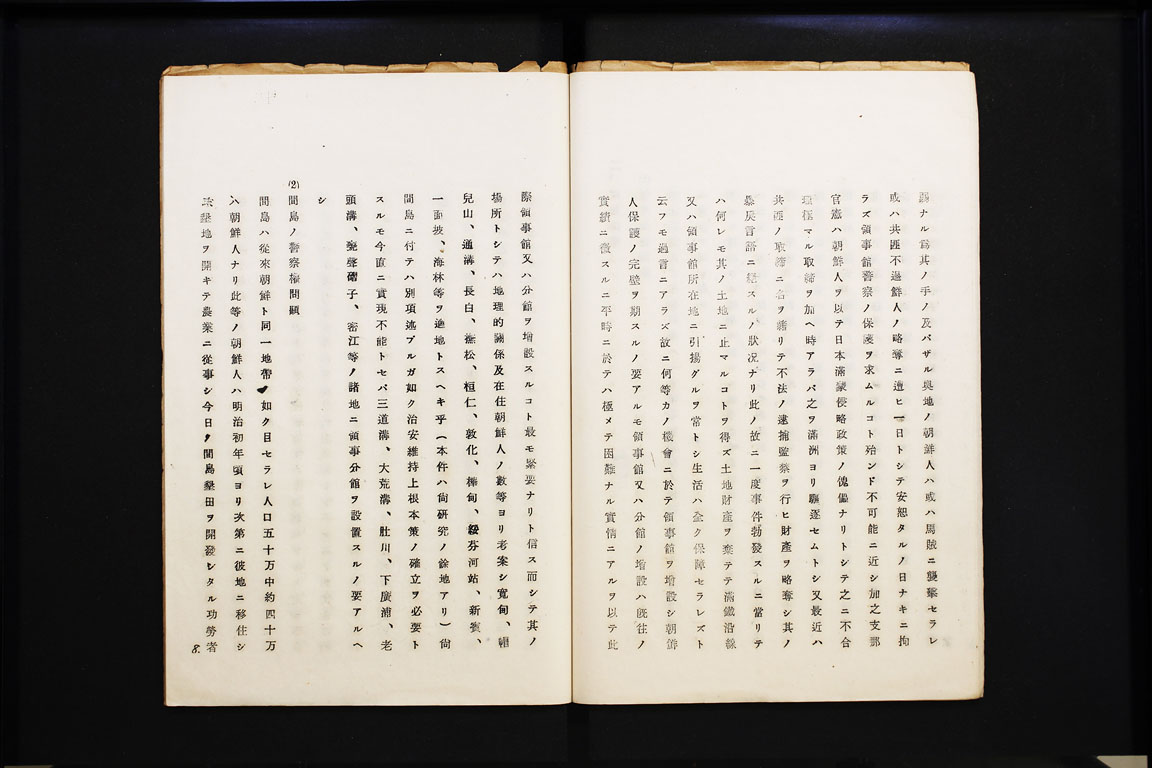 弱ナル爲其ノ手ノ及バザル奥地ノ朝鮮人ハ或ハ馬賊ニ襲撃セラレ
或ハ共匪不逞鮮人ノ略奪ニ遭ヒ一日トシテ安恕タルノ日ナキニ拘
ラズ領事館警察ノ保護ヲ求ムルコト殆ンド不可能ニ近シ加之支那
官憲ハ朝鮮人ヲ以テ日本滿蒙侵略政策ノ傀儡ナリトシテ之ニ不合
理極マル取締ヲ加ヘ時アラバ之ヲ滿洲ヨリ驅逐セムトシ又最近ハ
共匪ノ取締ニ名ヲ藉リテ不法ノ逮捕監禁ヲ行ヒ財產ヲ略奪シ其ノ
暴戻言語ニ絕スルノ狀況ナリ此ノ故ニ一度事件勃發スルニ當リテ
ハ何レモ其ノ土地ニ止マルコトヲ得ズ土地財產ヲ棄テテ滿鐵沿線
又ハ領事館所在地ニ引揚グルヲ常トシ生活ハ全ク保障セラレズト
云フモ過言ニアラズ故ニ何等カノ機會ニ於テ領事館ヲ增設シ朝鮮
人保護ノ完璧ヲ期スルノ要アルモ領事館又ハ分館ノ增設ハ旣往ノ
實績ニ徵スルニ平時ニ於テハ極メテ困難ナル實情ニアルヲ以テ此
際領事館又ハ分館ヲ增設スルコト最モ緊要ナリト信ス而シテ其ノ
場所トシテハ地理的關係及在住朝鮮人ノ數等ヨリ考案シ寬甸、帽
兒山、通溝、長白、撫松、桓仁、敦化、樺甸、綏芬河站、新賓、
一面坡、海林等ヲ適地トスヘキ乎(本件ハ尙研究ノ餘地アリ)尙
間島ニ付テハ別項述ブルガ如ク治安維持上根本策ノ確立ヲ必要ト
スルモ今直ニ實現不能トセバ三道溝、大荒溝、肚川、下廣浦、老
頭溝、甕聲磖子、密江等ノ諸地ニ領事分館ヲ設置スルノ要アルヘ
シ
(2)間島ノ警察權問題
間島ハ從來朝鮮ト同一地帶ノ如ク目セラレ人口五十万中約四十万
ハ朝鮮人ナリ此等ノ朝鮮人ハ明治初年頃ヨリ次第ニ彼地ニ移住シ
墾地ヲ開キテ農業ニ從事シ今日ノ間島墾田ヲ開發シタル功勞者
8.